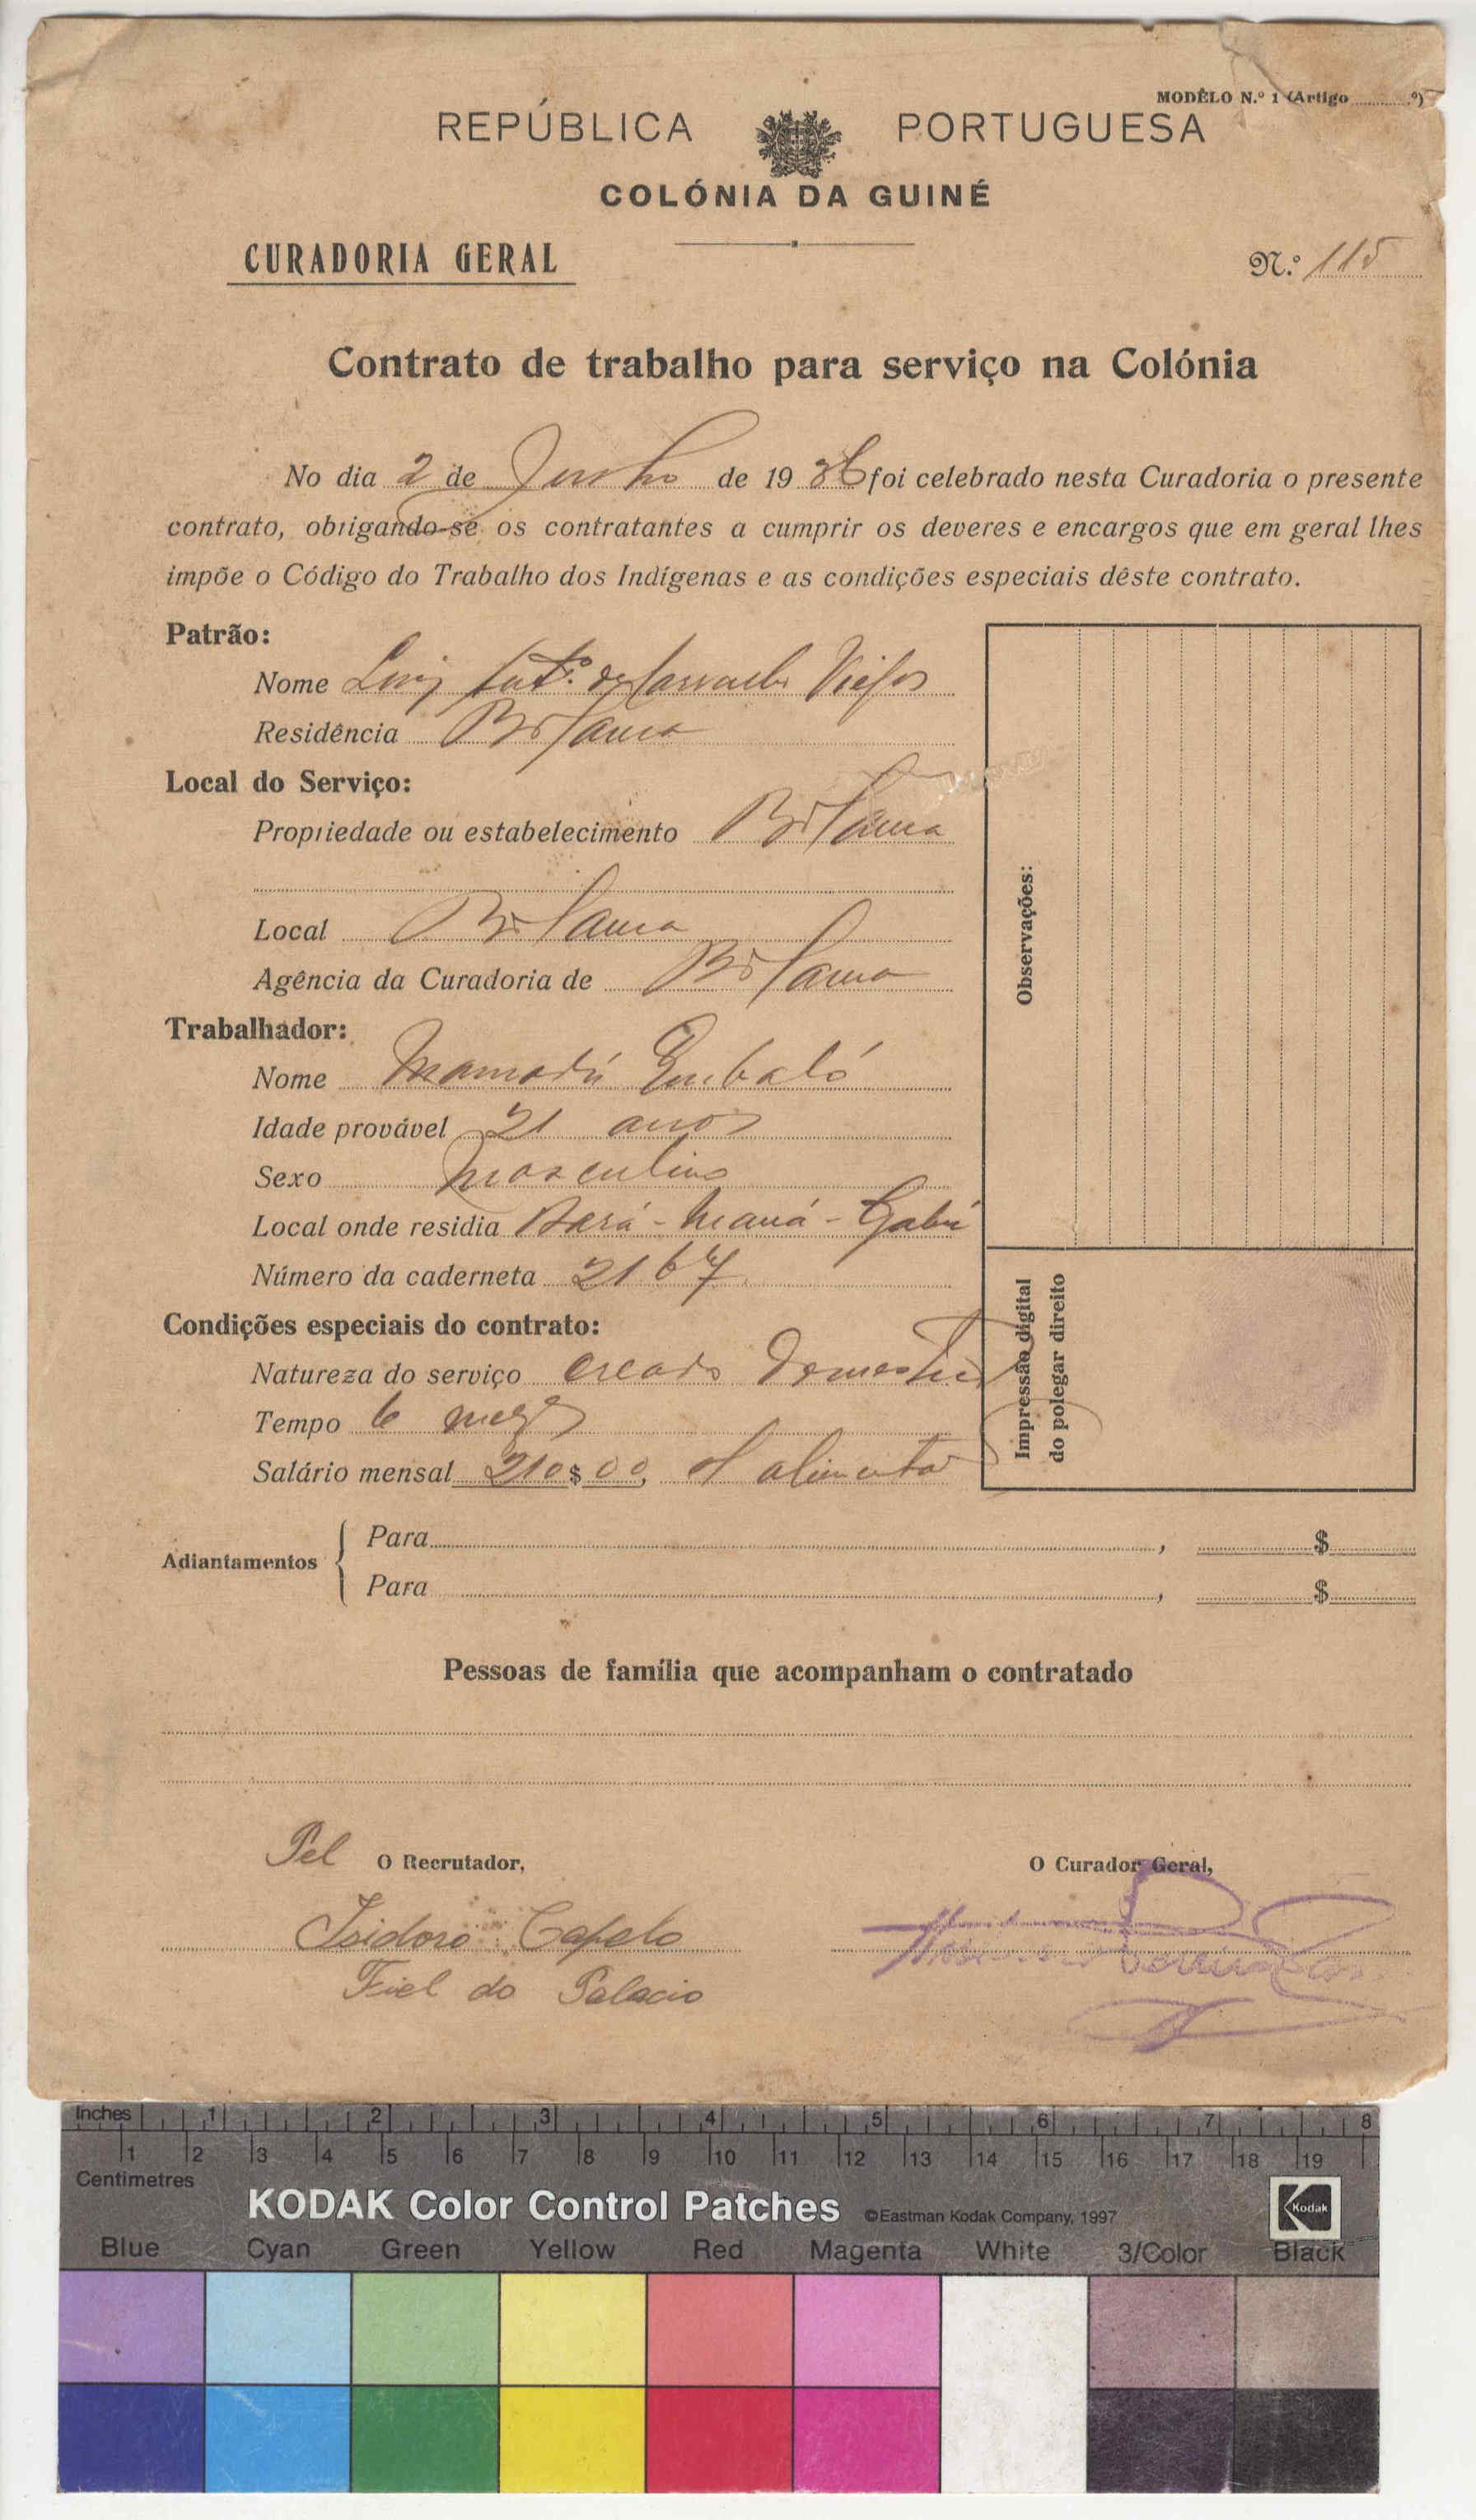 MODÊLO N.º 1 (Artigo ............º)
REPÚBLICA PORTUGUESA
COLÓNIA DA GUINÉ
CURADORIA GERAL
N.º 115
Contrato de trabalho para serviço na Colónia
No dia 2 de Junho de 1936 foi celebrado nesta Curadoria o presente
contrato, obrigando-se os contratantes a cumprir os deveres e encargos que em geral lhes
impõe o Código do Trabalho dos Indígenas e as condições especiais dêste contrato.
Patrão:
Nome Luiz Ant.º de Carvalho Viegas
Residência Bolama
Local do Serviço:
Propriedade ou estabelecimento Bolama
Local Bolama
Agência da Curadoria de Bolama
Trabalhador:
Nome Mamadú Embaló
Idade provável 21 anos
Sexo Masculino
Local onde residia - Maná - Gabú
Número da caderneta 2167
Condições especiais do contrato:
Natureza do serviço creado domestico
Tempo 6 mezes
Salário mensal 210$00, alimentado
Observações:
Impressão digital
do polegar direito
Adiantamentos
Para ............, ............$............
Para ............, ............$............
Pessoas de família que acompanham o contratado
Pel O Recrutador,
Isidoro Capelo
Fiel do Palacio
O Curador Geral,
Inches 1 2 3 4 5 6 7 8
1 2 3 4 5 6 7 8 9 10 11 12 13 14 15 16 17 18 19
Centimetres
KODAK Color Control Patches ©Eastman Kodak Company, 1997 Kodak
Blue Cyan Green Yellow Red Magenta White 3/Color Black